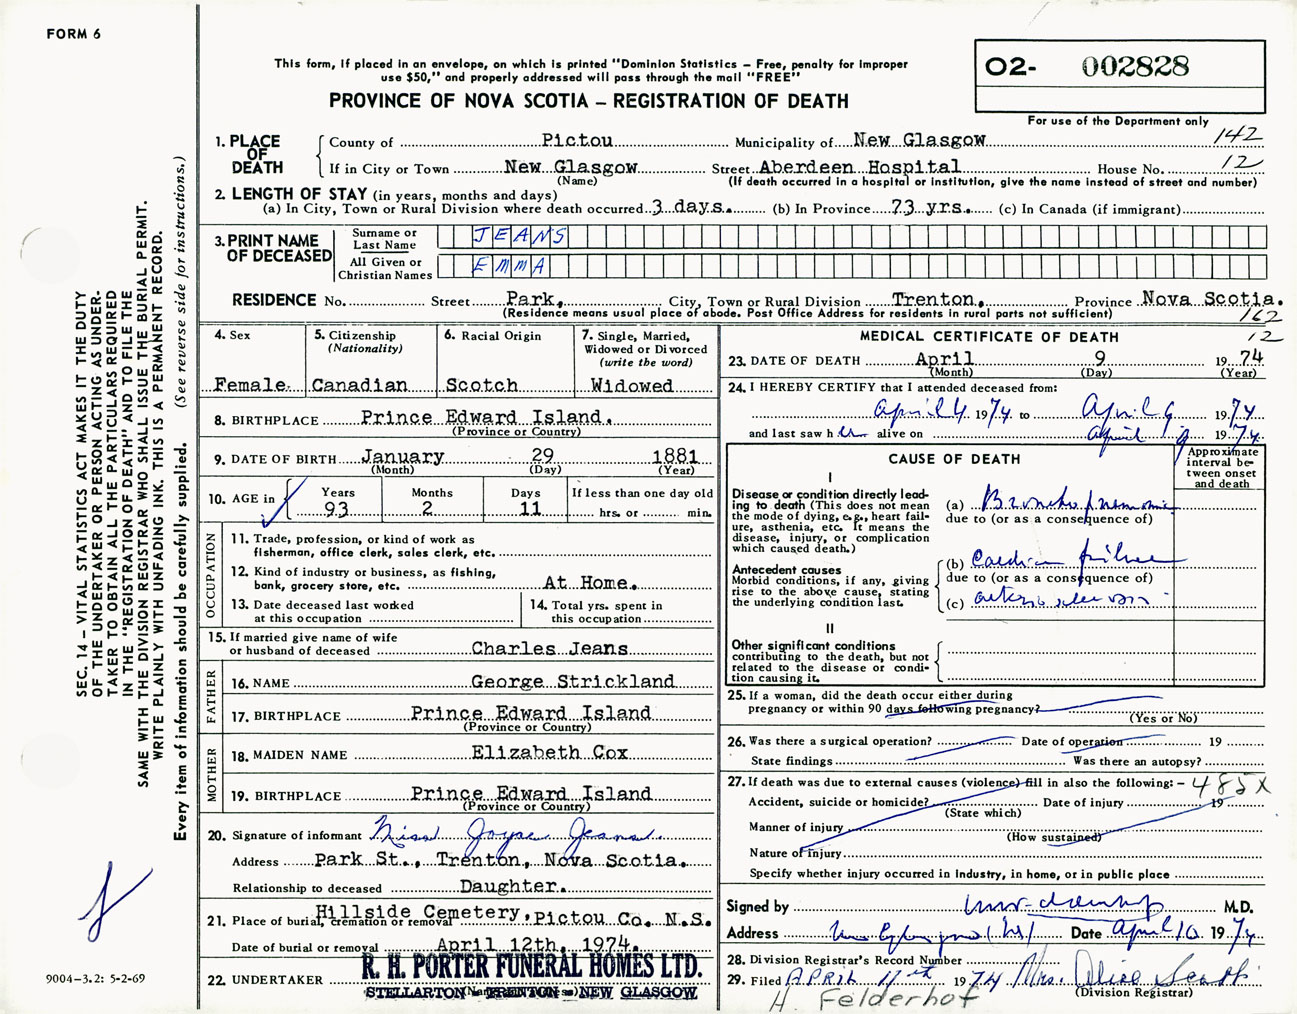 FORM 6
This form, if placed in an envelope, on which is printed "Dominion Statistics - Free, penalty for improper
use $50," and properly addressed will pass through the mail "FREE"
PROVINCE OF NOVA SCOTIA – REGISTRATION OF DEATH
O2- 002828
For use of the Department only
142
12
1. PLACE OF DEATH
County of Pictou Municipality of New Glasgow
If in City or Town New Glasgow Street Aberdeen Hospital House No.
(Name) (If death occurred in a hospital or institution, give the name instead of street and number)
2. LENGTH OF STAY (in years, months and days)
(a) In City, Town or Rural Division where death occurred 3 days. (b) In Province 73 yrs. (c) In Canada (if immigrant)
3. PRINT NAME OF DECEASED
Surname or Last Name JEANS
All Given or Christian Names EMMA
RESIDENCE No. Street Park, City, Town or Rural Division Trenton, Province Nova Scotia.
(Residence means usual place of abode. Post Office Address for residents in rural parts not sufficient)
162
12
4. Sex Female
5. Citizenship (Nationality) Canadian
6. Racial Origin Scotch
7. Single, Married, Widowed or Divorced (write the word) Widowed
8. BIRTHPLACE Prince Edward Island.
(Province or Country)
9. DATE OF BIRTH January 29 1881
(Month) (Day) (Year)
10. AGE in Years 93 Months 2 Days 11 If less than one day old hrs. or min.
OCCUPATION
11. Trade, profession, or kind of work as
fisherman, office clerk, sales clerk, etc.
12. Kind of industry or business, as fishing,
bank, grocery store, etc. At Home.
13. Date deceased last worked
at this occupation
14. Total yrs. spent in
this occupation
15. If married give name of wife
or husband of deceased Charles Jeans
FATHER
16. NAME George Strickland
17. BIRTHPLACE Prince Edward Island
(Province or Country)
MOTHER
18. MAIDEN NAME Elizabeth Cox
19. BIRTHPLACE Prince Edward Island
(Province or Country)
20. Signature of informant Miss Joyce Jeans
Address Park St., Trenton, Nova Scotia.
Relationship to deceased Daughter.
21. Place of burial, cremation or removal Hillside Cemetery, Pictou Co. N.S.
Date of burial or removal April 12th, 1974.
22. UNDERTAKER R. H. PORTER FUNERAL HOMES LTD.
STELLARTON - TRENTON - NEW GLASGOW
MEDICAL CERTIFICATE OF DEATH
23. DATE OF DEATH April 9 1974
(Month) (Day) (Year)
24. I HEREBY CERTIFY that I attended deceased from:
April 4 1974 to April 9 1974
and last saw her alive on April 9 1974
CAUSE OF DEATH
Approximate
interval be-
tween onset
and death
I
Disease or condition directly lead-
ing to death (This does not mean
the mode of dying, e.g., heart fail-
ure, asthenia, etc. It means the
disease, injury, or complication
which caused death.)
(a) Broncho pneumonia
due to (or as a consequence of)
Antecedent causes
Morbid conditions, if any, giving
rise to the above cause, stating
the underlying condition last.
(b) Cardiac failure
due to (or as a consequence of)
(c) arteriosclerosis
II
Other significant conditions
contributing to the death, but not
related to the disease or condi-
tion causing it.
25. If a woman, did the death occur either during
pregnancy or within 90 days following pregnancy?
(Yes or No)
26. Was there a surgical operation? Date of operation 19
State findings Was there an autopsy?
27. If death was due to external causes (violence) fill in also the following: – 485X
Accident, suicide or homicide? Date of injury 19
(State which)
Manner of injury
(How sustained)
Nature of injury
Specify whether injury occurred in industry, in home, or in public place
Signed by M.D.
Address Date April 10 1974
28. Division Registrar's Record Number
29. Filed APRIL 11th 1974 Mrs. Alice Scott
(Division Registrar)
H. Felderhof
SEC. 14 – VITAL STATISTICS ACT MAKES IT THE DUTY
OF THE UNDERTAKER OR PERSON ACTING AS UNDER-
TAKER TO OBTAIN ALL THE PARTICULARS REQUIRED
IN THE "REGISTRATION OF DEATH" AND TO FILE THE
SAME WITH THE DIVISION REGISTRAR WHO SHALL ISSUE THE BURIAL PERMIT.
WRITE PLAINLY WITH UNFADING INK. THIS IS A PERMANENT RECORD.
Every item of information should be carefully supplied. (See reverse side for instructions.)
9004-3.2: 5-2-69